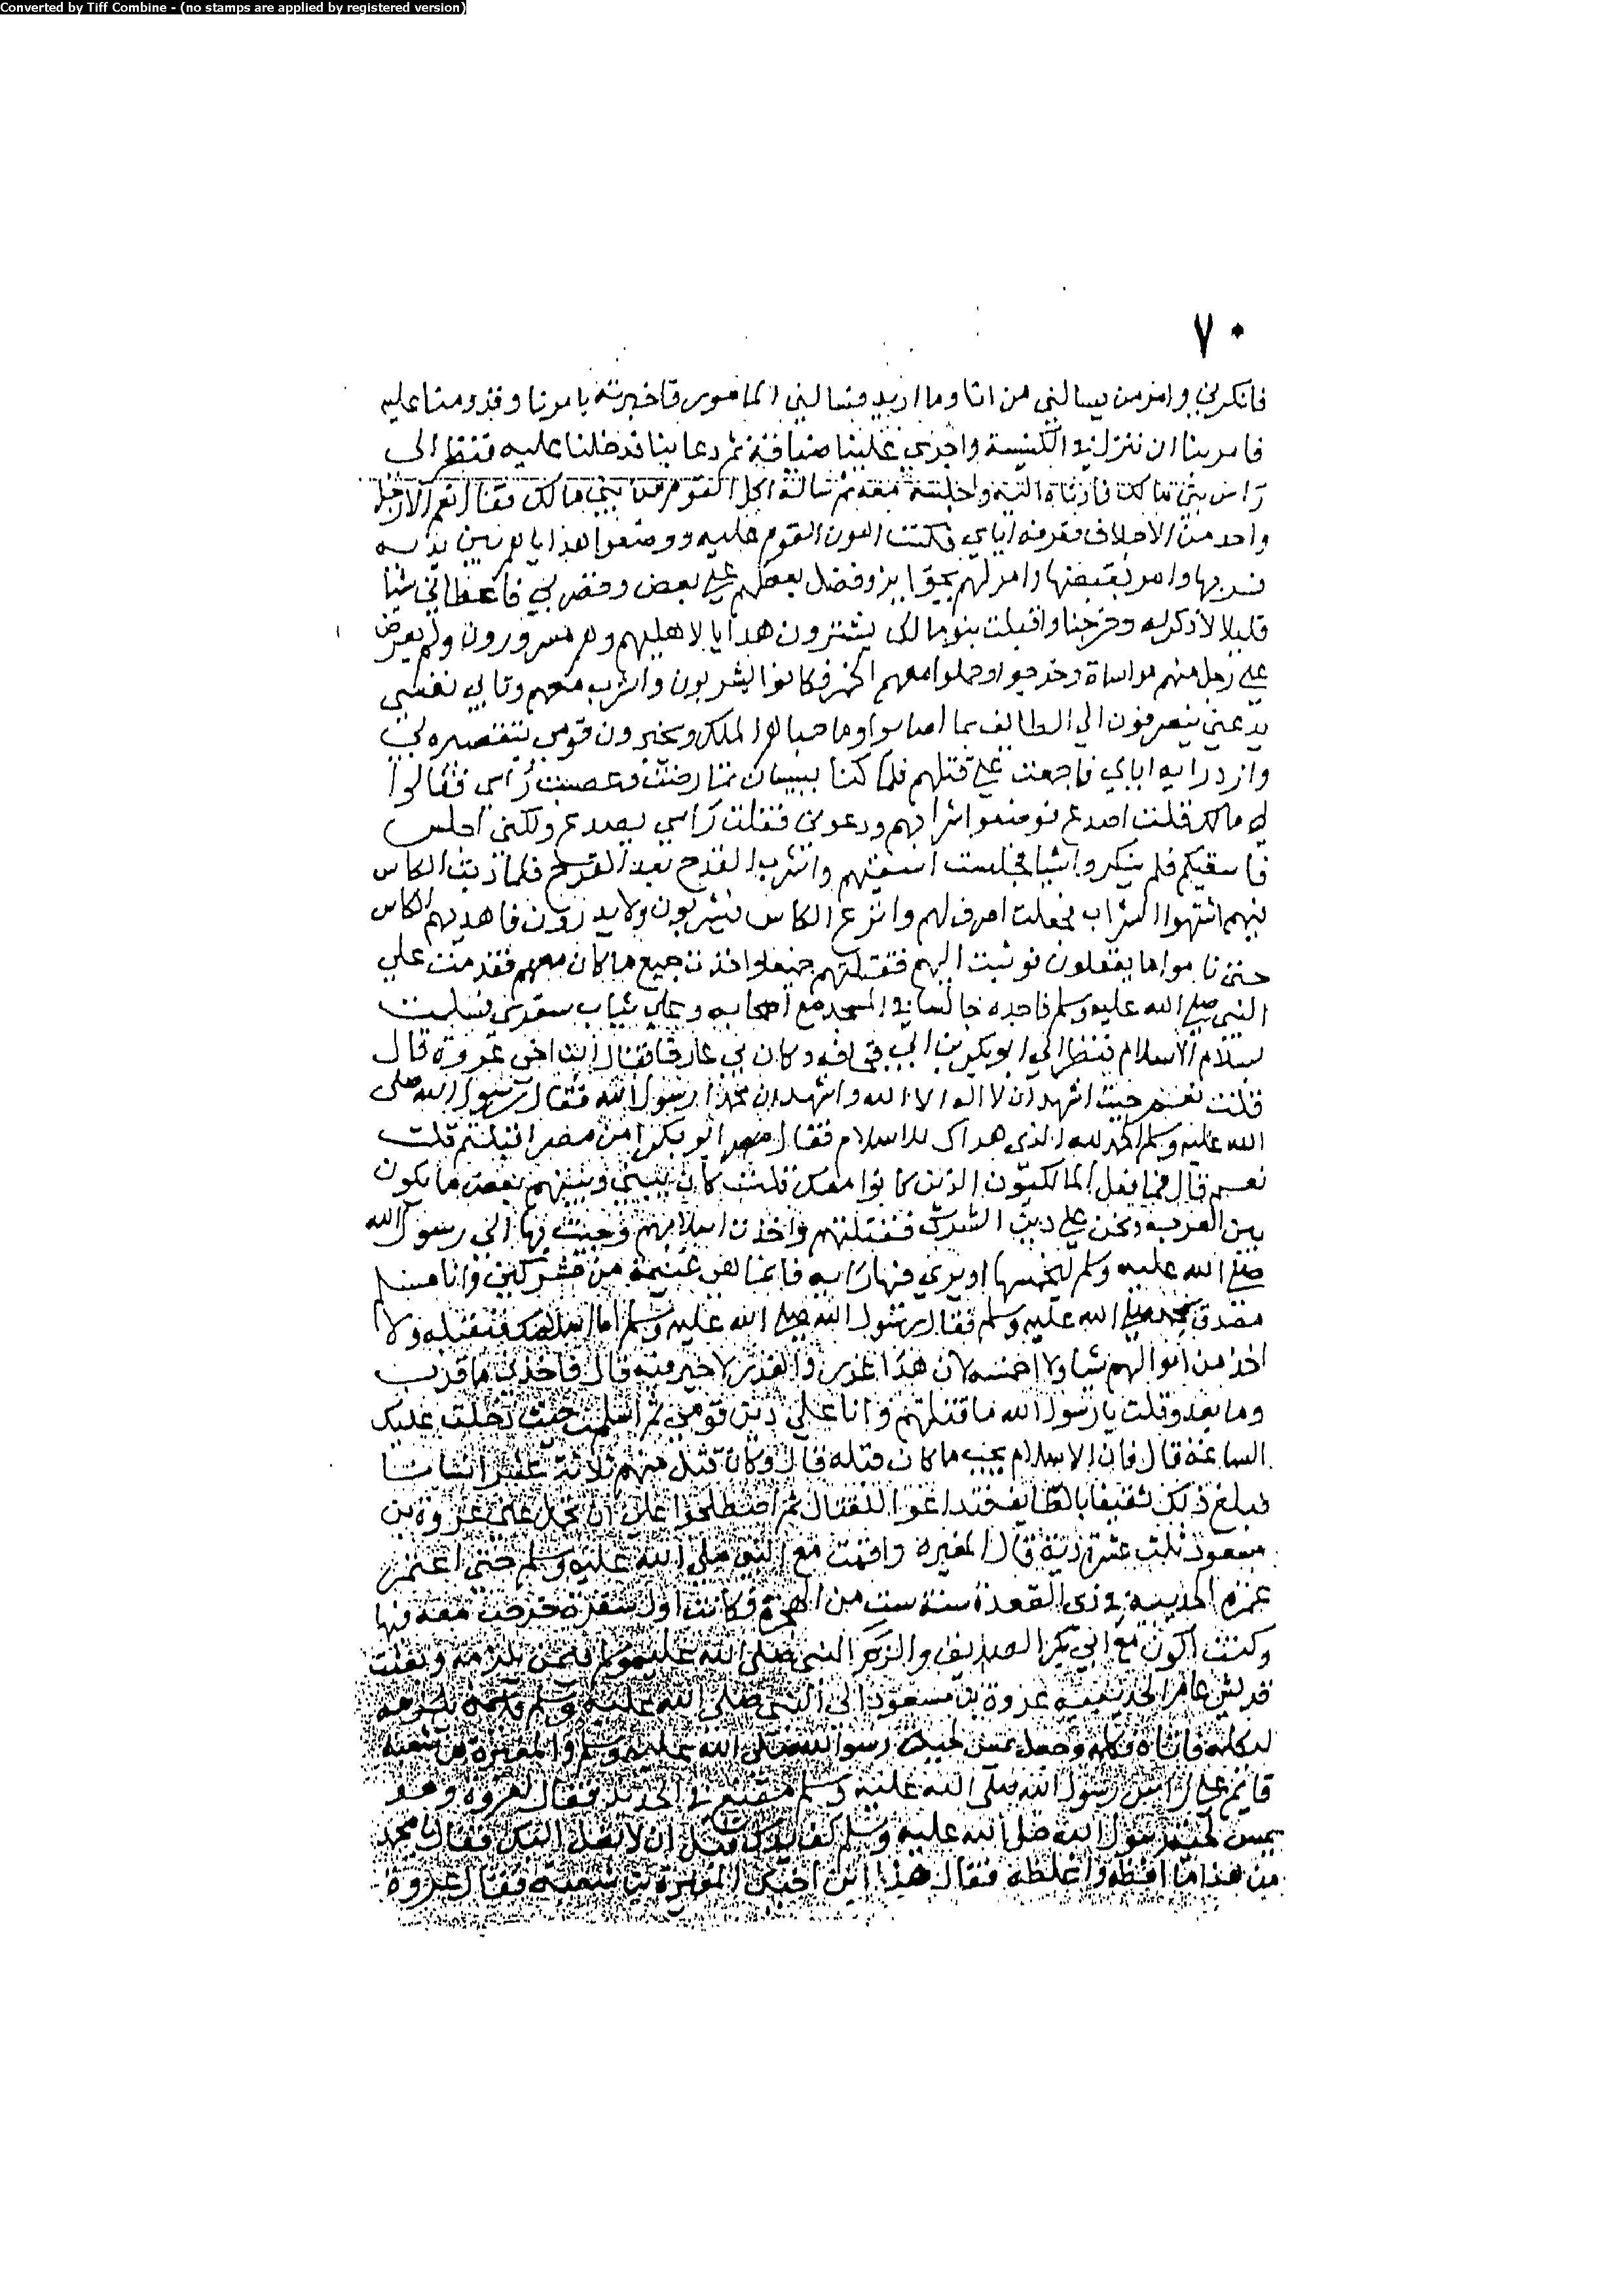 Converted by Tiff Combine - (no stamps are applied by registered version)
٧٠
فانكرني وامر من يسالني من انا وما اريد فسالني المامور فاخبرته بامرنا وقدومنا عليه
فامر بنا ان ننزل في الكنيسة واجري علينا ضيافة ثم دعا بنا فدخلنا عليه فنظر الى
راس بني مالك فادناه اليه واجلسه معه ثم ساله اكل القوم من بني مالك فقال نعم الا رجل
واحد من الاحلاف فعرفه اياي فكنت اهون القوم عليه ووضعوا هداياهم بين يديه
فسر بها وامر بقبضها وامر لهم بجوايز وفضل بعضهم علي بعض وقصر بي فاعطاني شيا
قليلا لا ذكر له وخرجنا واقبلت بنو مالك يشترون هدايا لاهليهم وهم مسرورون ولم يعرض
علي رجل منهم مواساة وخرجوا وحملوا معهم الخمر فكانوا يشربون واشرب معهم وتابي نفسي
يدعني ينصرفون الي الطايف بما اصابوا وما حباهم الملك ويخبرون قومي بتقصيره بي
وازدرايه اياي فاجمعت علي قتلهم فلما كنا ببيسان تمارضت وعصبت راسي فقالوا
لي مالك قلت اصدع فوضعوا شرابهم ودعوني فقلت راسي يصدع ولكني اجلس
فاسقيكم فلم ينكروا شيا فجلست اسقيهم واشرب القدح بعد القدح فلما دبت الكاس
فيهم اشتهوا الشراب فجعلت اصرف لهم وانزع الكاس فيشربون ولا يدرون فاهديهم الكاس
حتى ناموا ما يعقلون فوثبت اليهم فقتلتهم جميعا واخذت جميع ما كان معهم فقدمت علي
النبي صلى الله عليه وسلم فاجده جالسا في المسجد مع اصحابه وعلي ثياب سفري فسلمت
بسلام الاسلام فنظر الي ابو بكر بن ابي قحافه وكان بي عارفا فقال ابن اخي عروة قال
قلت نعم جيت اشهد ان لا اله الا الله واشهد ان محمدا رسول الله فقال رسول الله صلى
الله عليه وسلم الحمد لله الذى هداك للاسلام فقال ابو بكر امن مصر اقبلتم قلت
نعم قال فما فعل المالكيون الذين كانوا معك قلت كان بيني وبينهم بعض ما يكون
بين العرب ونحن علي دين الشرك فقتلتهم واخذت اسلابهم وجيت بها الى رسول الله
صلى الله عليه وسلم ليخمسها او يري فيها رايه فانما هي غنيمة من مشركين وانا مسلم
مصدق بمحمد صلى الله عليه وسلم فقال رسول الله صلى الله عليه وسلم اما اسلامك فنقبله ولا
اخذ من اموالهم شيا ولا اخمسه لان هذا غدر والغدر لا خير فيه قال فاخذني ما قرب
وما بعد وقلت يا رسول الله ما قتلتهم وانا علي دين قومي ثم اسلمت حيث دخلت عليك
الساعة قال فان الاسلام يجب ما كان قبله قال وكان قتل منهم ثلاثة عشر انسانا
فبلغ ذلك ثقيفا بالطايف فتداعوا للقتال ثم اصطلحوا على ان تحمل عني عروة بن
مسعود ثلث عشرة دية قال المغيره واقمت مع النبي صلى الله عليه وسلم حتى اعتمر
عمرة الحديبية في ذى القعدة سنة ست من الهجرة فكانت اول سفرة خرجت معه فيها
وكنت اكون مع ابي بكر الصديق والزم النبي صلى الله عليه وسلم فيمن يلزمه وبعثت
قريش عام الحديبية عروة بن مسعود الى النبي صلى الله عليه وسلم
ليكلمه فاتاه فكلمه وجعل يمس لحية رسول الله صلى الله عليه وسلم والمغيرة بن شعبة
قايم على راس رسول الله صلى الله عليه وسلم مقنع في الحديد فقال لعروة وهو
يمس لحية رسول الله صلى الله عليه وسلم كف يدك قبل ان لا تصل اليك فقال يا محمد
من هذا ما افظه واغلظه فقال هذا ابن اخيك المغيرة بن شعبة فقال عروة